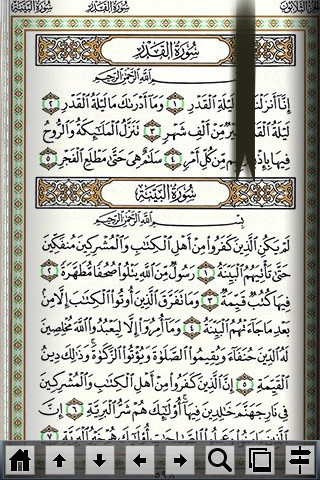 سُورَةُ البَيِّنَةِ سُورَةُ القَدْرِ الجُزْءُ الثَّلَاثُونَ
سُورَةُ الْقَدْرِ
بِسْمِ اللَّهِ الرَّحْمَٰنِ الرَّحِيمِ
إِنَّا أَنزَلْنَ لَيْلَةِ الْقَدْرِ ١ وَمَا أَدْرَىٰكَ مَا لَيْلَةُ الْقَدْرِ ٢
لَيْلَةُ الْقَدْ خَيْرٌ مِّنْ أَلْفِ شَهْرٍ ٣ تَنَزَّلُ الْمَلَٰٓئِكَةُ وَالرُّوحُ
فِيهَا بِإِذْنِ رَبِّهِم مِّن كُلِّ أَمْرٍ ٤ سَلَٰمٌ هِىَ حَتَّىٰ مَطْلَعِ الْفَجْرِ ٥
سُورَةُ الْبَيِّنَةِ
بِسْمِ اللَّهِ الرَّحْمَٰنِ الرَّحِيمِ
لَمْ يَكُنِ الَّذِينَ كَفَرُوا مِنْ أَهْلِ الْكِتَٰبِ وَالْمُشْرِكِينَ مُنفَكِّينَ
حَتَّىٰ تَأْتِيَهُمُ الْبَيِّنَةُ ١ رَسُولٌ مِّنَ اللَّهِ يَتْلُوا صُحُفًا مُّطَهَّرَةً ٢
فِيهَا كُتُبٌ قَيِّمَةٌ ٣ وَمَا تَفَرَّقَ الَّذِينَ أُوتُوا الْكِتَٰبَ إِلَّا مِنۢ
بَعْدِ مَا جَآءَتْهُمُ الْبَيِّنَةُ ٤ وَمَآ أُمِرُوٓا إِلَّا لِيَعْبُدُوا اللَّهَ مُخْلِصِينَ
لَهُ الدِّينَ حُنَفَآءَ وَيُقِيمُوا الصَّلَوٰةَ وَيُؤْتُوا الزَّكَوٰةَ وَذَٰلِكَ دِينُ
الْقَيِّمَةِ ٥ إِنَّ الَّذِينَ كَفَرُوا مِنْ أَهْلِ الْكِتَٰبِ وَالْمُشْرِكِينَ
فِى نَارِ جَهَنَّمَ خَٰلِدِينَ فِيهَآ أُولَٰٓئِكَ هُمْ شَرُّ الْبَرِيَّةِ ٦ إِنَّ
الَّذِينَ ءَامَنُوا وَعَمِلُوا الصَّٰلِحَٰتِ أُولَٰٓئِكَ هُمْ خَيْرُ الْبَرِيَّةِ ٧
٥٩٨